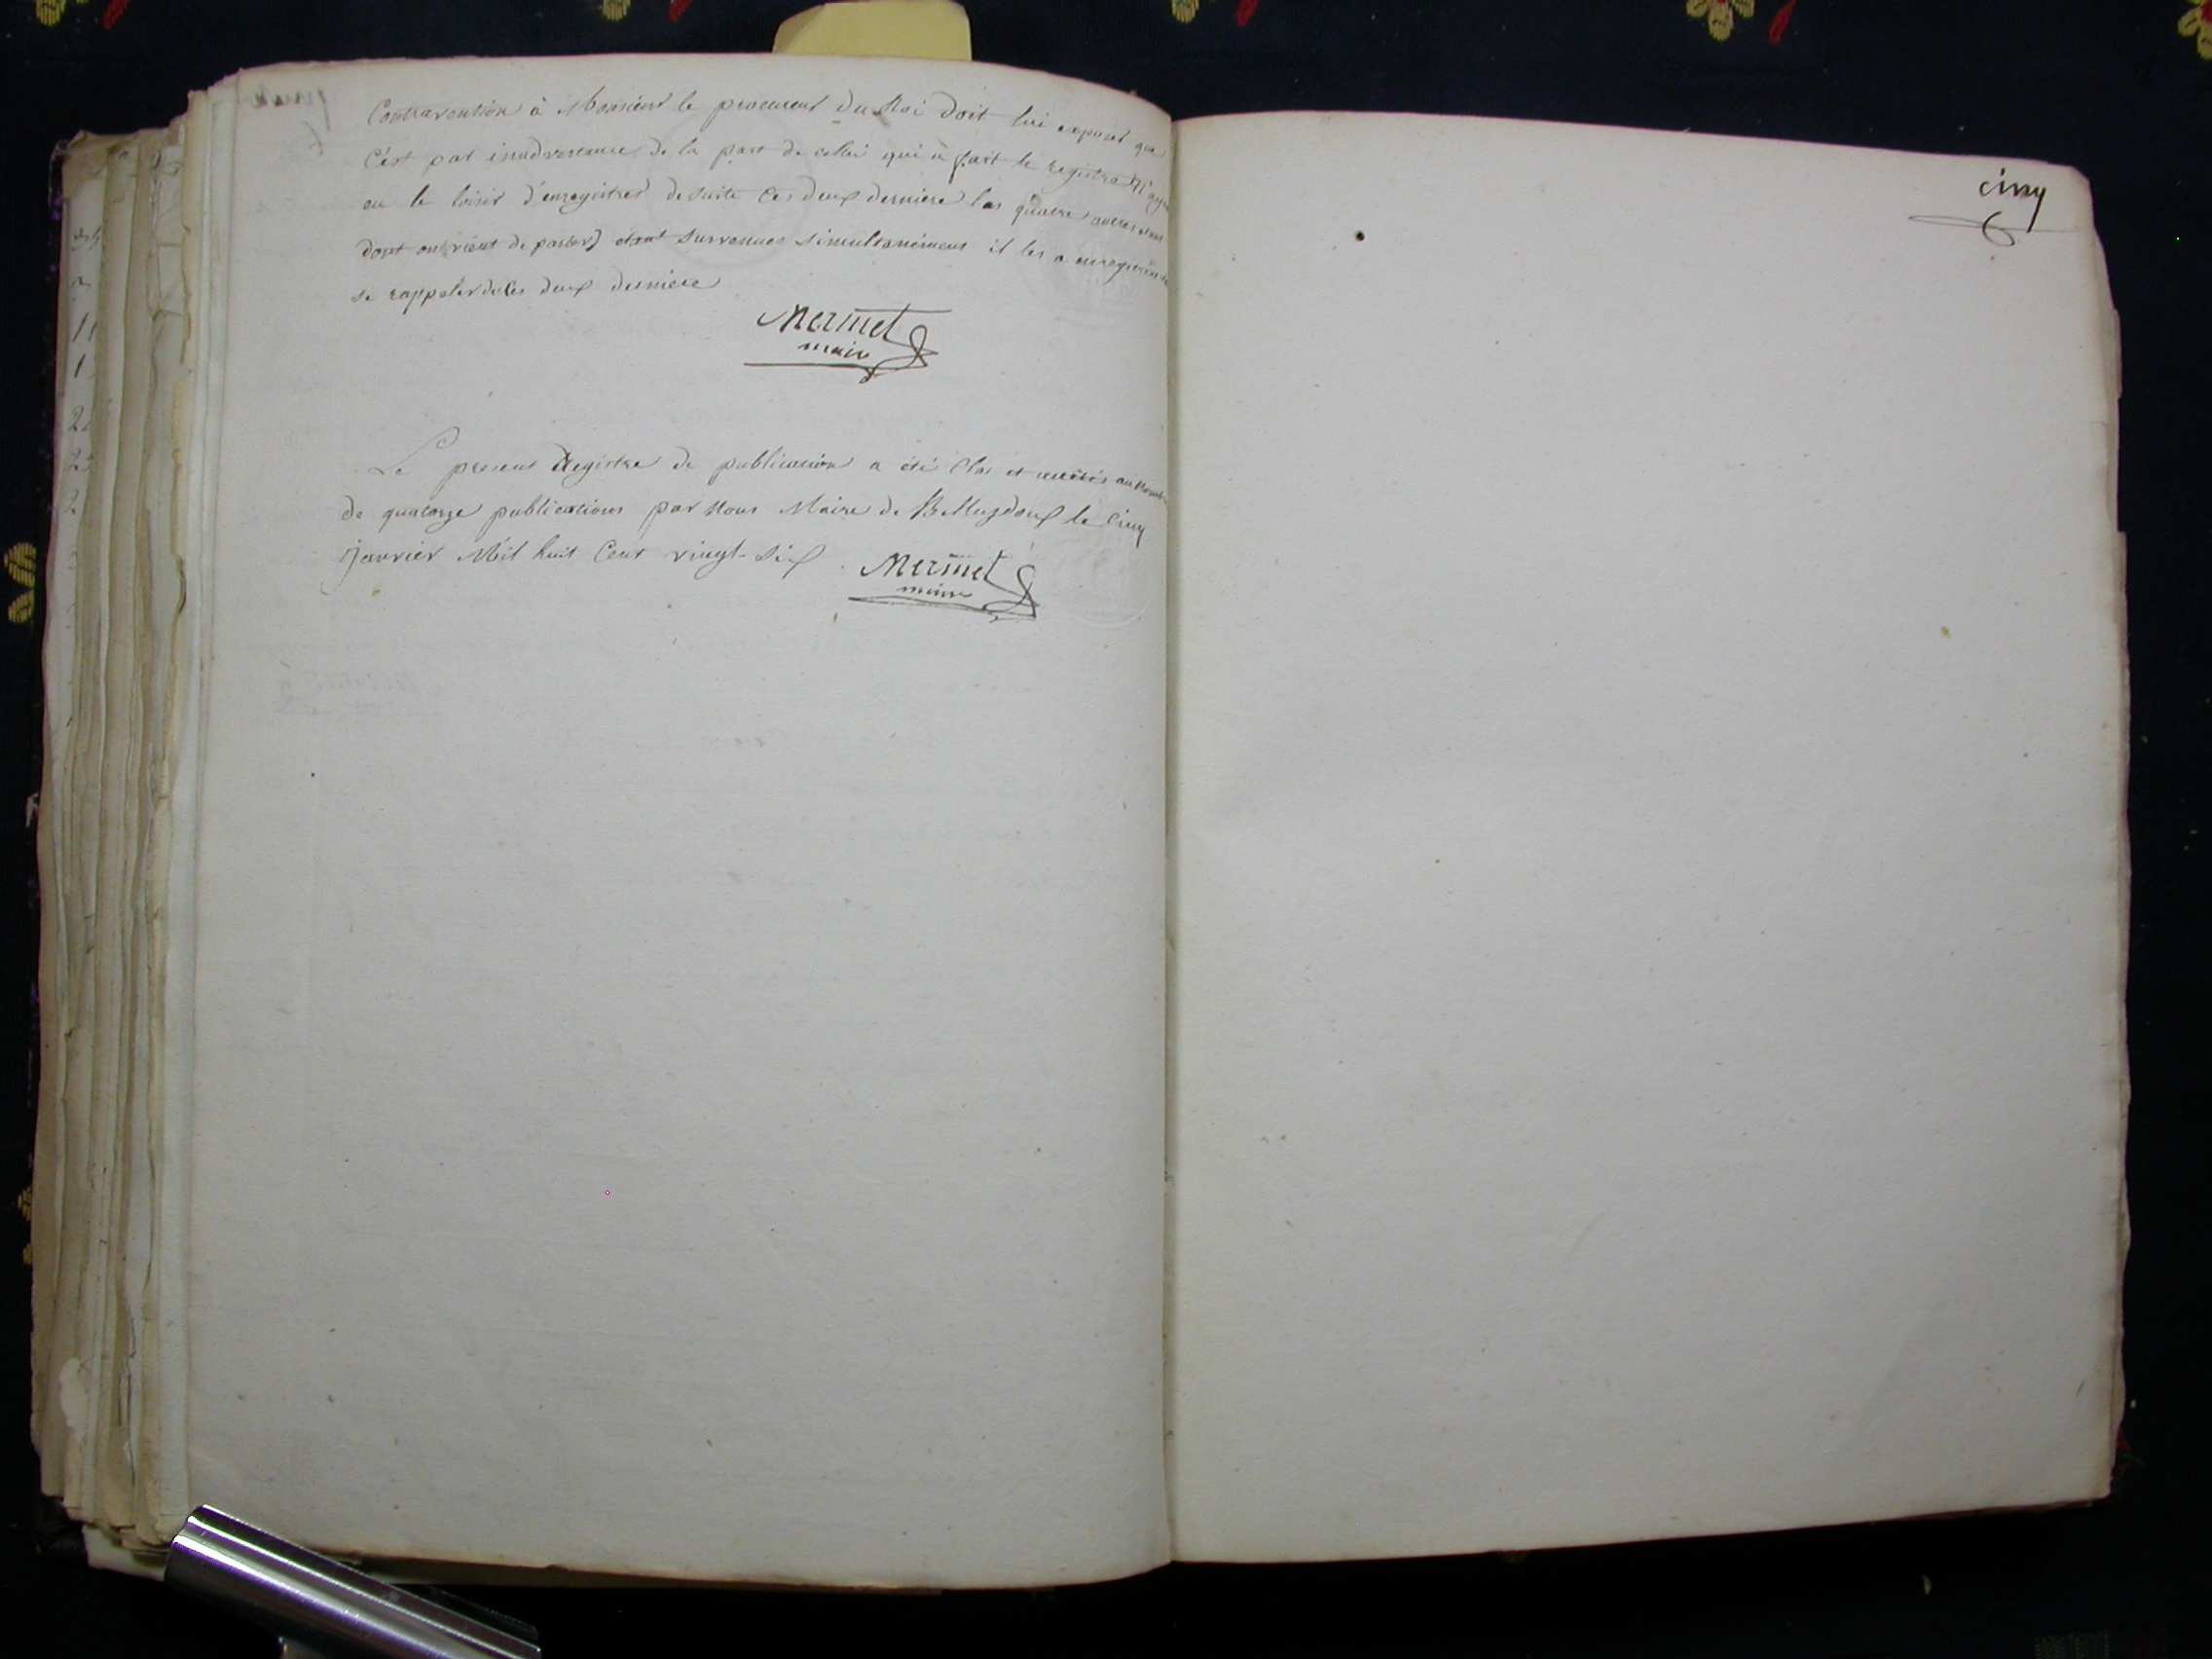 Contravention à Monsieur le procureur Du Roi doit lui exposer que
C'est par inadvertance de la part de celui qui a fait le registre N'ayant
eu le loisir d'enregistrer de suite Ces deux derniere les quatre autres
dont on vient de parler) étant survenues simultanément il les a
se rappeler de Ces deux derniere
Mermet
maire
Le present Registre de publication a été Clos et arrêtés au Nombre
de quatorze publications par Nous Maire de le Cinq
Janvier Mil huit Cent vingt-Six
Mermet
maire
cinq